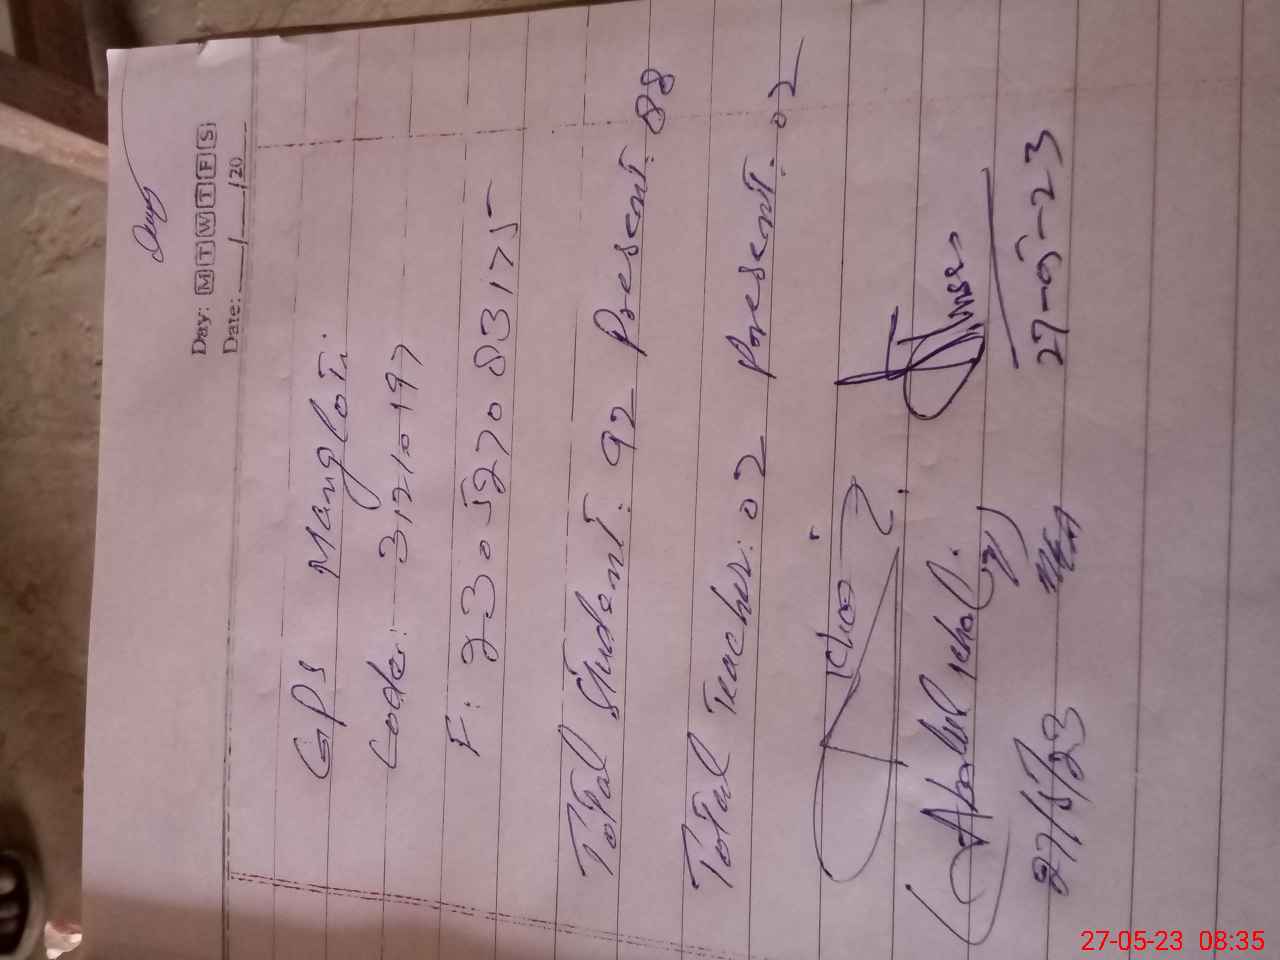 Day: M T W T F S
Date: ___/___/20___
GPS Mangloti
Code: 31210197
F: 230527083175
Total Student: 92 Present: 88
Total Teacher: 02 Present: 02
27/5/23
27-05-23
27-05-23 08:35